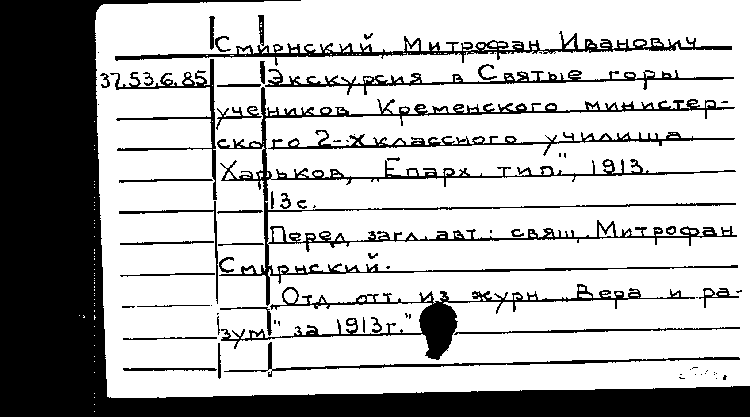 Смирнский, Митрофан Иванович
37.53.6.85 Экскурсия в Святые горы
учеников Кременского министер-
ского 2-хклассного училища.
Харьков, „Епарх. тип.", 1913.
13с.
Перед загл. авт.: свящ. Митрофан
Смирнский.
„Отд. отт. из журн. „Вера и ра-
зум" за 1913г."